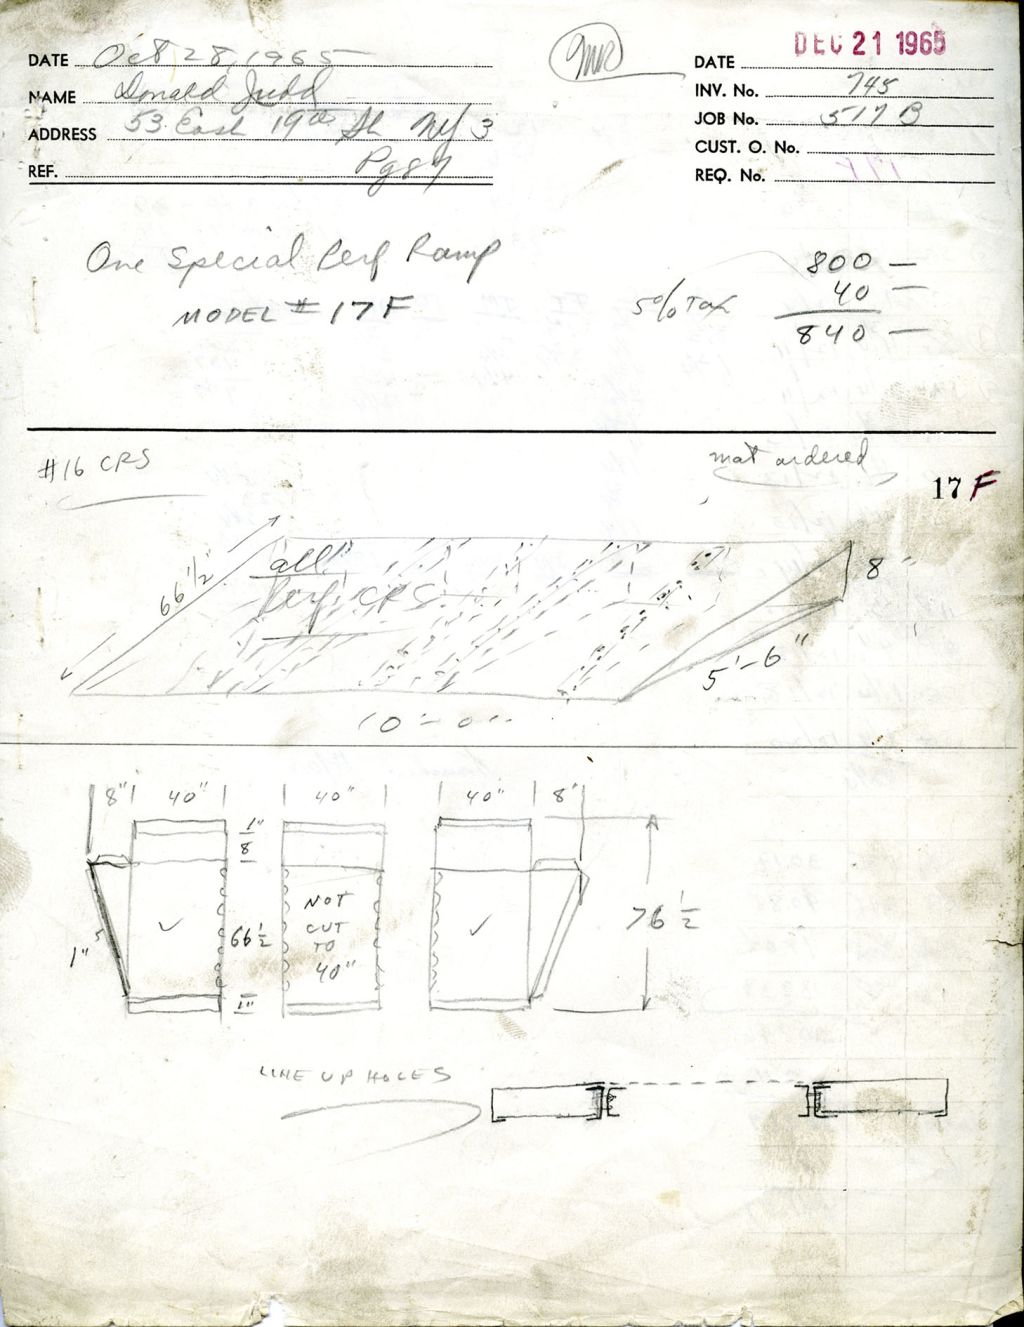 DATE Oct 28, 1965
NAME Donald Judd
ADDRESS 53 East 19th St NY 3
REF. Pg 87
DEC 21 1965
DATE
INV. No. 745
JOB No. 517 B
CUST. O. No.
REQ. No. 17F
One Special Perf Ramp
MODEL # 17F
800 —
5% Tax 40 —
840 —
#16 CRS
mat ordered
17 F
66 1/2"
all
Perf CRS
8"
5'-6"
10'-0"
8" 40" 40" 40" 8"
1"
8
NOT
CUT
TO
40"
66 1/2
76 1/2
1"
1"
LINE UP HOLES